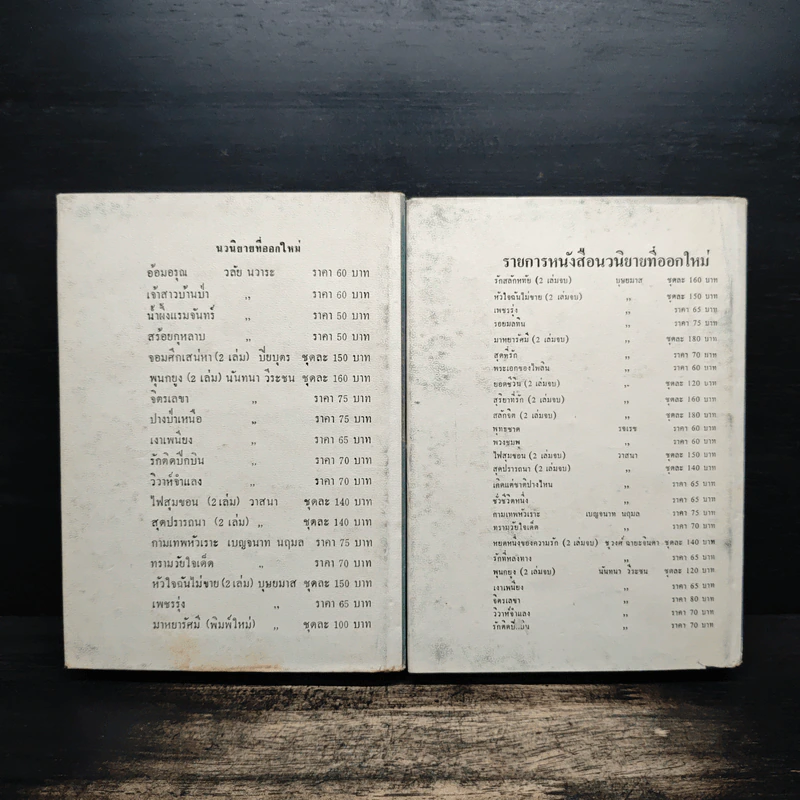 นวนิยายที่ออกใหม่
อ้อมอรุณ วลัย นวาระ ราคา 60 บาท
เจ้าสาวบ้านป่า ,, ราคา 60 บาท
น้ำผึ้งแรมจันทร์ ,, ราคา 50 บาท
สร้อยกุหลาบ ,, ราคา 50 บาท
จอมศึกเสน่หา (2 เล่ม) ปิยบุตร ชุดละ 150 บาท
พุ่นกยูง (2 เล่ม) นันทนา วีระชน ชุดละ 160 บาท
จิตรเลขา ,, ราคา 75 บาท
ปางป่าเหนือ ,, ราคา 75 บาท
เงาเพนียง ,, ราคา 65 บาท
รักติดปีกบิน ,, ราคา 70 บาท
วิวาห์จำแลง ,, ราคา 70 บาท
ไฟสุมขอน (2 เล่ม) วาสนา ชุดละ 140 บาท
สุดปรารถนา (2 เล่ม) ,, ชุดละ 140 บาท
กามเทพหัวเราะ เบญจนาท นฤมล ราคา 75 บาท
ทรามวัยใจเด็ด ,, ราคา 70 บาท
หัวใจฉันไม่ขาย (2 เล่ม) บุษยมาส ชุดละ 150 บาท
เพชรรุ่ง ,, ราคา 65 บาท
มาหยารัศมี (พิมพ์ใหม่) ,, ชุดละ 100 บาท
รายการหนังสือนวนิยายที่ออกใหม่
รักสลักหทัย (2 เล่มจบ) บุษยมาส ชุดละ 160 บาท
หัวใจฉันไม่ขาย (2 เล่มจบ) ,, ชุดละ 150 บาท
เพชรรุ่ง ,, ราคา 65 บาท
รอยมลทิน ,, ราคา 75 บาท
มาหยารัศมี (2 เล่มจบ) ,, ชุดละ 180 บาท
สุดที่รัก ,, ราคา 70 บาท
พระเอกของไพลิน ,, ราคา 60 บาท
ยอดชีวัน (2 เล่มจบ) ,, ชุดละ 120 บาท
สุริยาที่รัก (2 เล่มจบ) ,, ชุดละ 160 บาท
สลักจิต (2 เล่มจบ) ,, ชุดละ 180 บาท
พุทธชาด รชเรข ราคา 60 บาท
พวงชมพู ,, ราคา 60 บาท
ไฟสุมขอน (2 เล่มจบ) วาสนา ชุดละ 150 บาท
สุดปรารถนา (2 เล่มจบ) ,, ชุดละ 140 บาท
เคิดแต่ชาติปางไหน ,, ราคา 65 บาท
ชั่วชีวิตหนึ่ง ,, ราคา 65 บาท
กามเทพหัวเราะ เบญจนาท นฤมล ราคา 75 บาท
ทรามวัยใจเด็ด ,, ราคา 70 บาท
หยดหนึ่งของความรัก (2 เล่มจบ) ชูวงศ์ ฉายะจินดา ชุดละ 140 บาท
รักที่หลงทาง ,, ราคา 65 บาท
พุ่นกยูง (2 เล่มจบ) นันทนา วีระชน ชุดละ 120 บาท
เงาเพนียง ,, ราคา 65 บาท
จิตรเลขา ,, ราคา 80 บาท
วิวาห์จำแลง ,, ราคา 70 บาท
รักติดปีกบิน ,, ราคา 70 บาท